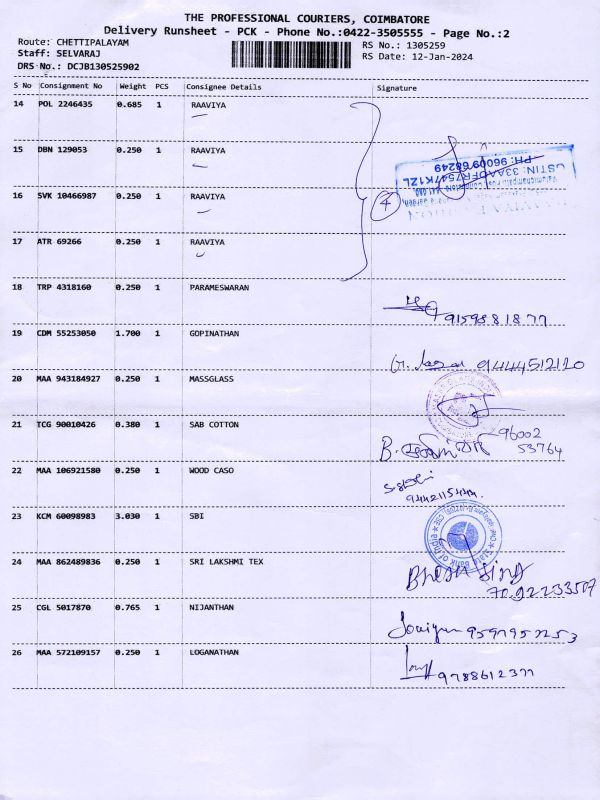 THE PROFESSIONAL COURIERS, COIMBATORE
Delivery Runsheet - PCK - Phone No.:0422-3505555 - Page No.:2
Route: CHETTIPALAYAM
Staff: SELVARAJ
DRS No.: DCJB130525902
RS No.: 1305259
RS Date: 12-Jan-2024
S No Consignment No Weight PCS Consignee Details Signature
14 POL 2246435 0.685 1 RAAVIYA
15 DBN 129053 0.250 1 RAAVIYA
PH: 9600968249
GSTIN: 33AADFR7547K1ZL
16 SVK 10466987 0.250 1 RAAVIYA
4
17 ATR 69266 0.250 1 RAAVIYA
18 TRP 4318160 0.250 1 PARAMESWARAN
9159881877
19 CDM 55253050 1.700 1 GOPINATHAN
9444512120
20 MAA 943184927 0.250 1 MASSGLASS
21 TCG 90010426 0.380 1 SAB COTTON
96002
53764
22 MAA 106921580 0.250 1 WOOD CASO
23 KCM 60098983 3.030 1 SBI
State Bank of India
24 MAA 862489836 0.250 1 SRI LAKSHMI TEX
25 CGL 5017870 0.765 1 NIJANTHAN
26 MAA 572109157 0.250 1 LOGANATHAN
9788612377